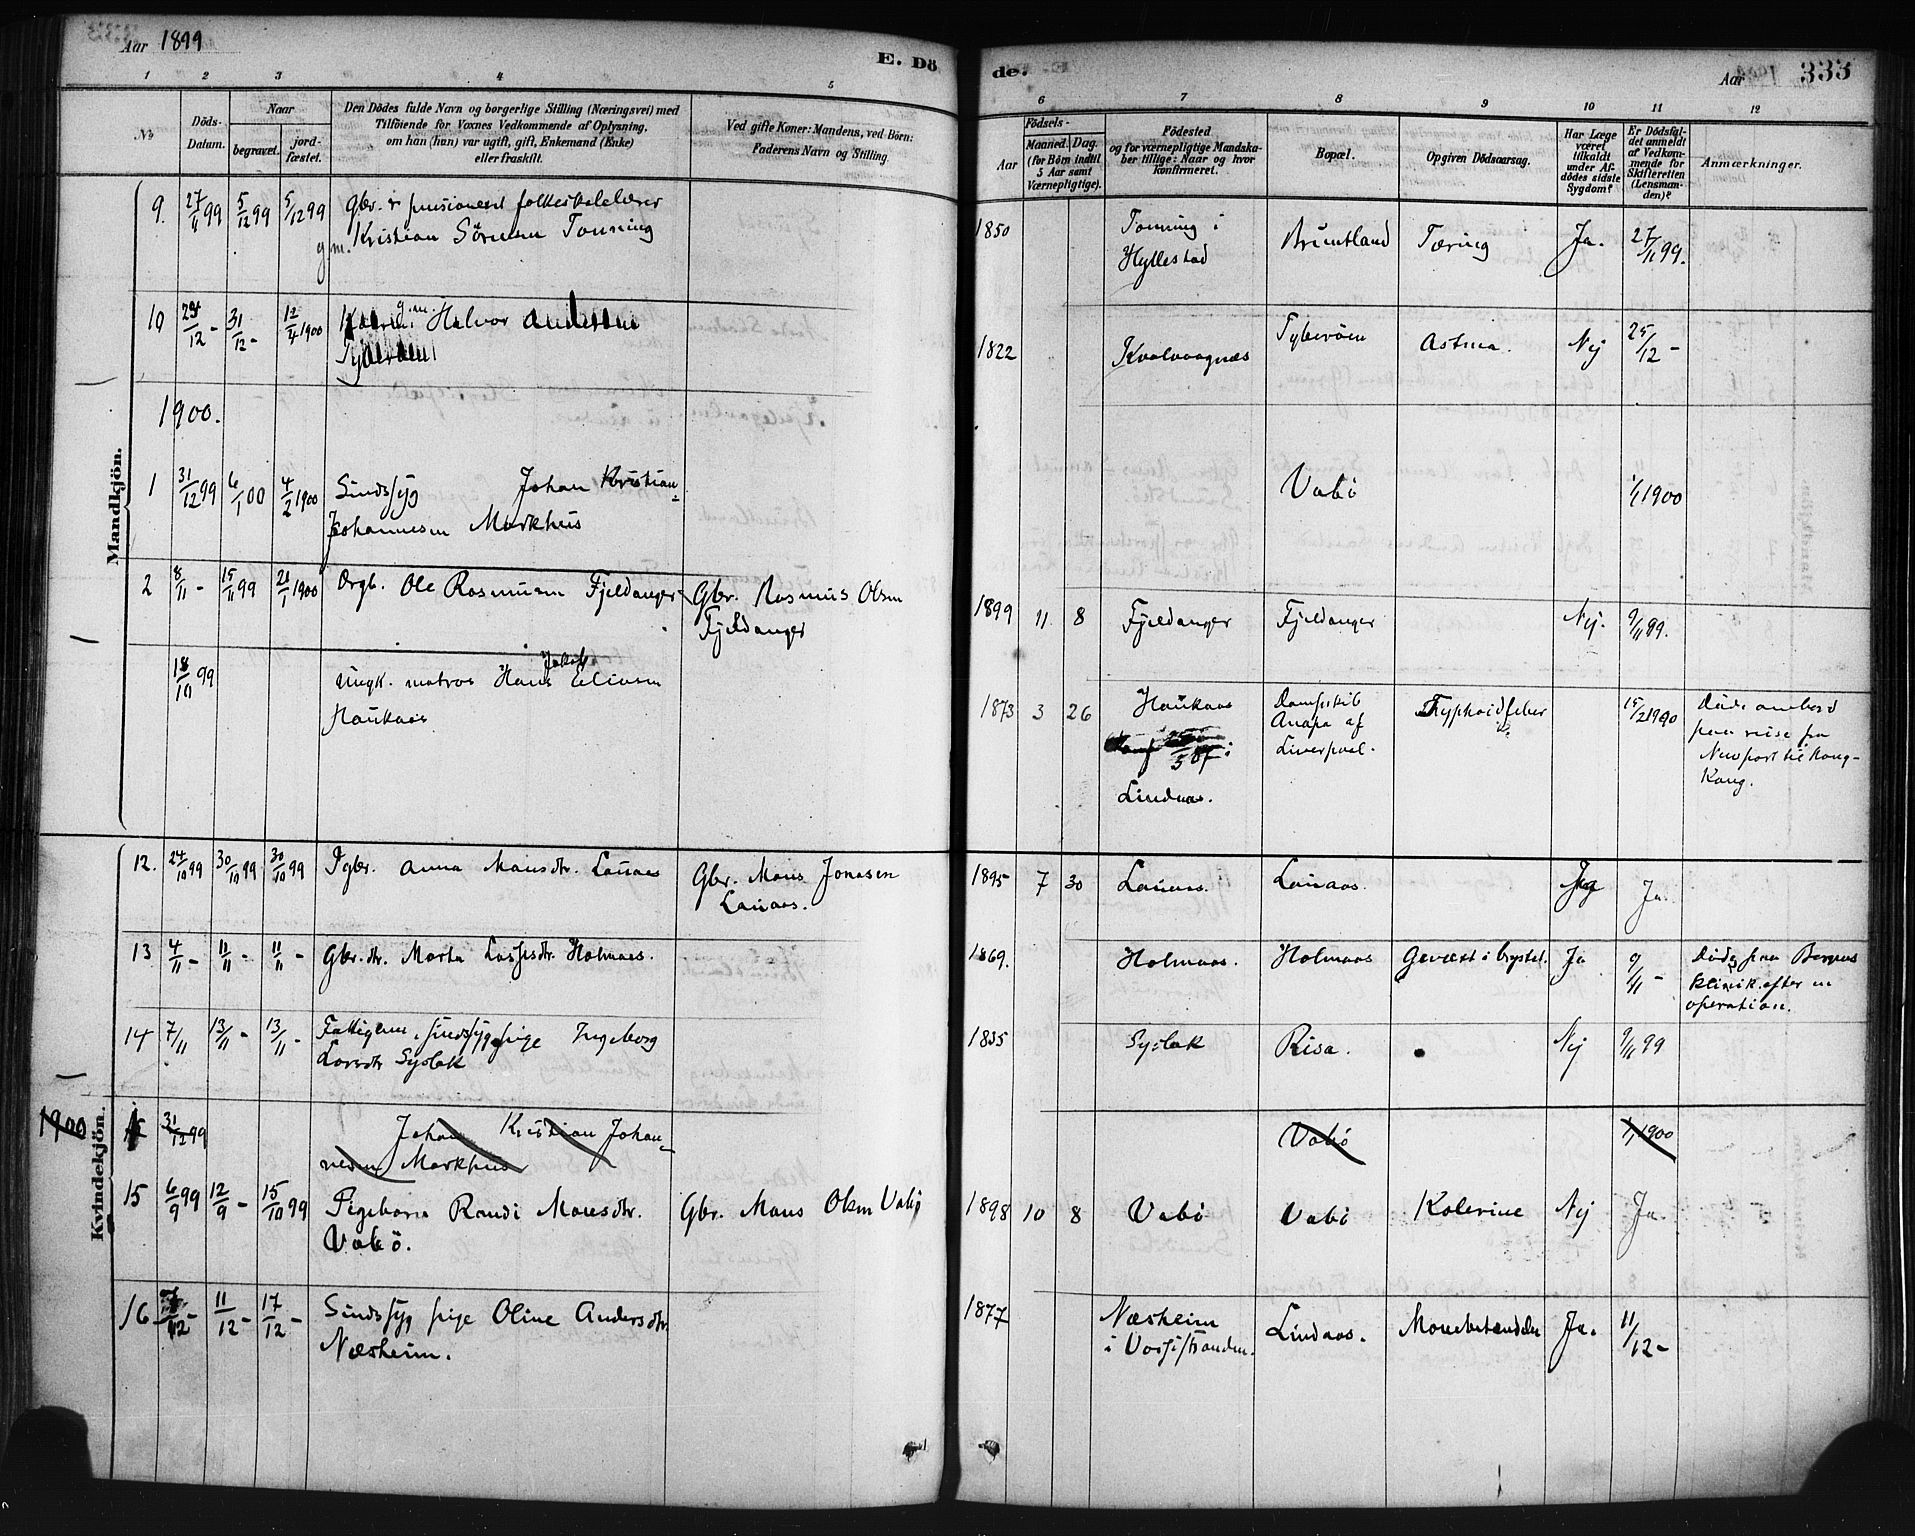 Aar 1899
E. Dö
de.
Aar
333
1 2 3 4 5
6 7 8 9 10 11 12
No
Döds-
Datum.
Naar
begravet.
jord-
fæstet.
Den Dödes fulde Navn og borgerlige Stilling (Næringsvei) med
Tilföiende for Voxnes Vedkommende af Oplysning,
om han (hun) var ugift, gift, Enkemand (Enke)
eller fraskilt.
Ved gifte Koner: Mandens, ved Börn:
Faderens Navn og Stilling.
Födsels-
Aar
Maaned. Dag.
(for Börn indtil
5 Aar samt
Værnepligtige).
Födested
og for værnepligtige Mandska-
ber tillige: Naar og hvor
konfirmeret.
Bopæl.
Opgiven Dödsaarsag.
Har Læge
været
tilkaldt
under Af-
dödes sidste
Sygdom?
Er Dödsfal-
det anmeldt
af Vedkom-
mende for
Skifteretten
(Lensman-
den)?
Anmærkninger.
Mandkjön.
9. 27/11 99 5/12 99 5/12 99 Gbr. og pensioneret folkeskolelærer
gm. Kristian Sörensen Tonning
1850 Tonning i Brundtland Tæring Ja. 27/11 99.
Hyllestad
10 24/12 - 31/12 - 12/4 1900 gm. Halvor Andersen
1822 Kvalvaagnæs Syberöen Astma. Nej 25/12 -
1900.
1 31/12 99 6/1 00 4/2 1900 Sindssyg Johan Kristian
Johannesen Markhus
Vabö 1/1 1900
2 8/11 - 15/11 99 21/1 1900 Drgb. Ole Rasmusen Fjeldanger Gbr. Rasmus Olsen
Fjeldanger
1899 11 8 Fjeldanger Fjeldanger Nej. 9/11 99.
18/10 99 Ungk. matros Hans Jakob Eliasen
Haukaas
1873 3 26 Haukaas Dampskib Typhoidfeber 15/2 1900 Döde ombord
Anapa af paa reise fra
Liverpool. Newport til Hong-
Lindaas. Kong.
Kvindekjön.
12. 24/10 99 30/10 99 30/10 99 Pgbr. Anna Mansdtr. Lauaas Gbr. Mons Jonasen
Lauaas.
1895 7 30 Lauaas. Lauaas. Ja.
13 4/11 - 11/11 - 11/11 - Gbr. dtr. Marta Lassesdtr. Holmaas.
1869. Holmaas. Holmaas Gevæxt i brystet. Ja 9/11 - Döde paa Bergens
klinik efter en
operation.
14 7/11 13/11 - 13/11 - Fattiglem, sindssyg pige Ingeborg
Larsdtr Syslak
1835 Syslak Risa. Nej 9/11 99
1900 31/12 99 Johan Kristian Johan-
nesen Markhus
Vabö 1/1 1900
15 6/9 99 12/9 - 15/10 99 Pigebarn Randi Monsdtr. Gbr. Mons Olsen Vabö
Vabö.
1898 10 8 Vabö Vabö Kolerine Nej Ja.
16 11/12 - 17/12 - Sindssyg pige Oline Andersdtr.
Næsheim.
1877 Næsheim Lindaas. Mavebetændelse Ja. 11/12 -
i Vossestranden.